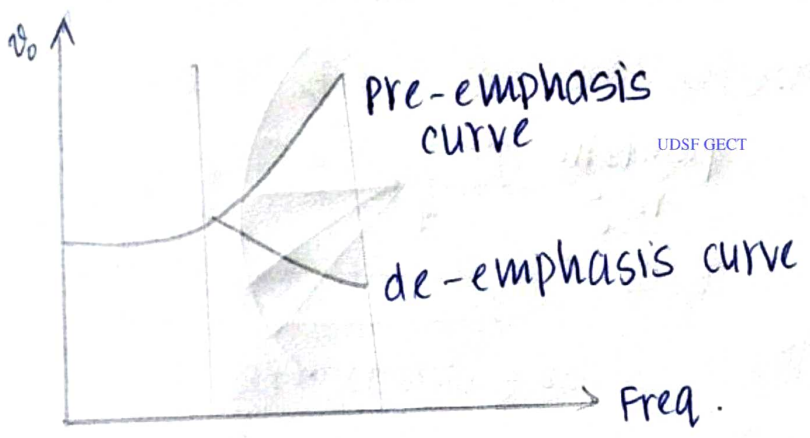 v₀
pre-emphasis
curve
UDSF GECT
de-emphasis curve
Freq.